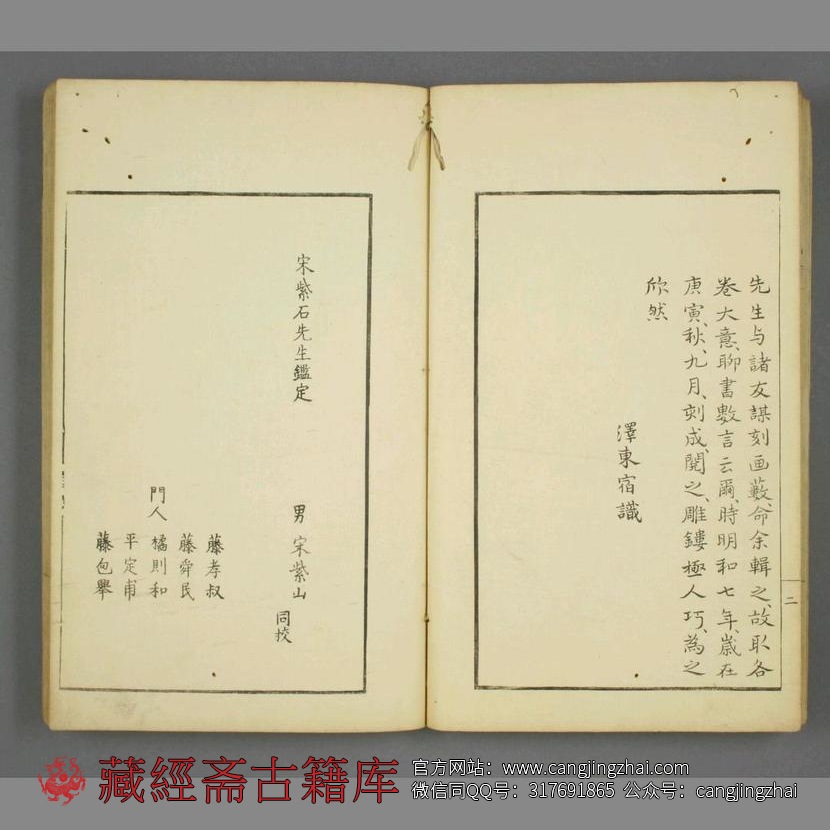 先生与諸友謀刻画藪、命余輯之、故取各
卷大意、聊書數言云爾、時明和七年、歲在
庚寅、秋、九月、刻成、閱之、雕鏤極人巧、為之
欣然
澤東宿識
二
宋紫石先生鑑定
男 宋紫山
同挍
藤孝叔
藤舜民
門人 橘則和
平定甫
藤包舉
藏經斋古籍库
官方网站：www.cangjingzhai.com
微信同QQ号：317691865 公众号：cangjingzhai